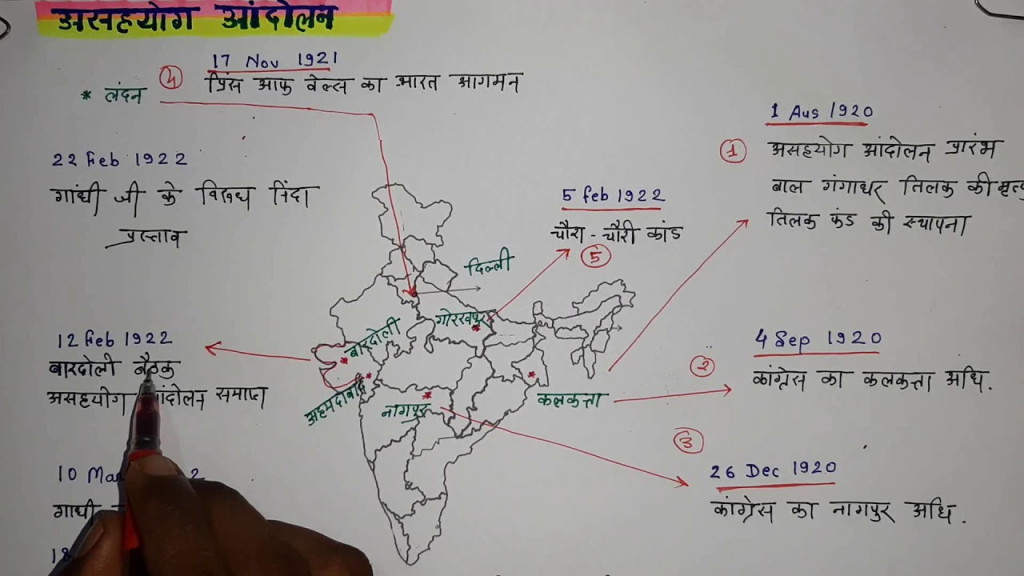 असहयोग आंदोलन
17 Nov 1921
* लंदन
4
प्रिंस आफ वेल्स का भारत आगमन
22 Feb 1922
गांधी जी के विरुध निंदा
प्रस्ताव
12 Feb 1922
बारदोली बैठक
असहयोग आंदोलन समाप्त
10
गांधी
5 feb 1922
चौरा-चौरी कांड
5
दिल्ली
गोरखपुर
बारदोली
अहमदाबाद
नागपुर
कलकत्ता
1 Aus 1920
1
असहयोग आंदोलन प्रारंभ
बाल गंगाधर तिलक की मृत्यु
तिलक फंड की स्थापना
4 Sep 1920
2
कांग्रेस का कलकत्ता अधि.
3
26 Dec 1920
कांग्रेस का नागपुर अधि.